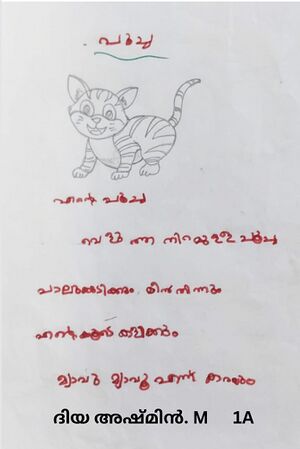 പൂച്ച
എന്റെ പൂച്ച
വെളുത്ത നിറമുള്ള പൂച്ച
പാലുകുടിക്കും മീൻ തിന്നും
എന്റെകൂടെ കളിക്കും
മ്യാവു മ്യാവൂ എന്ന് കരയും
ദിയ അഷ്മിൻ. M 1A